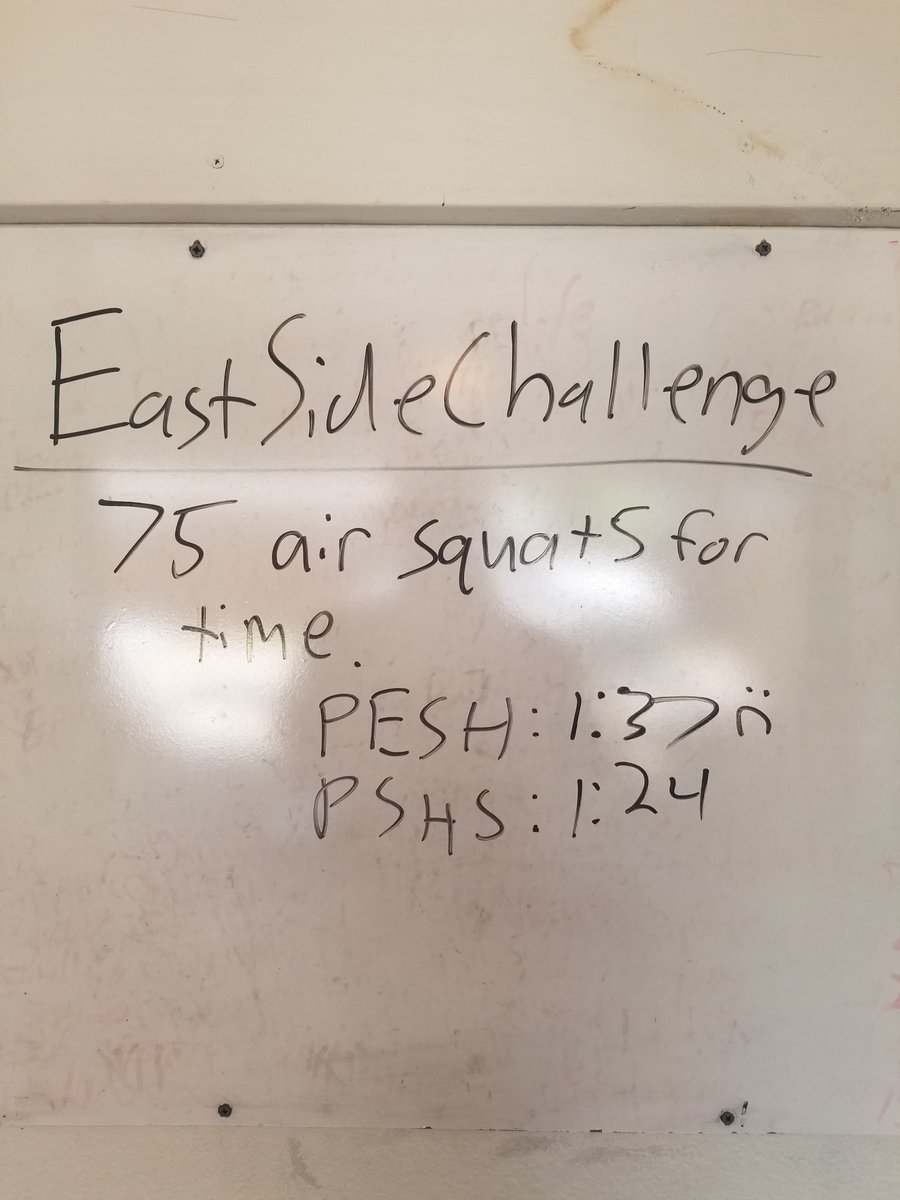 EastSideChallenge
75 air squats for
time.
PESH: 1:37 :(
PSHS: 1:24